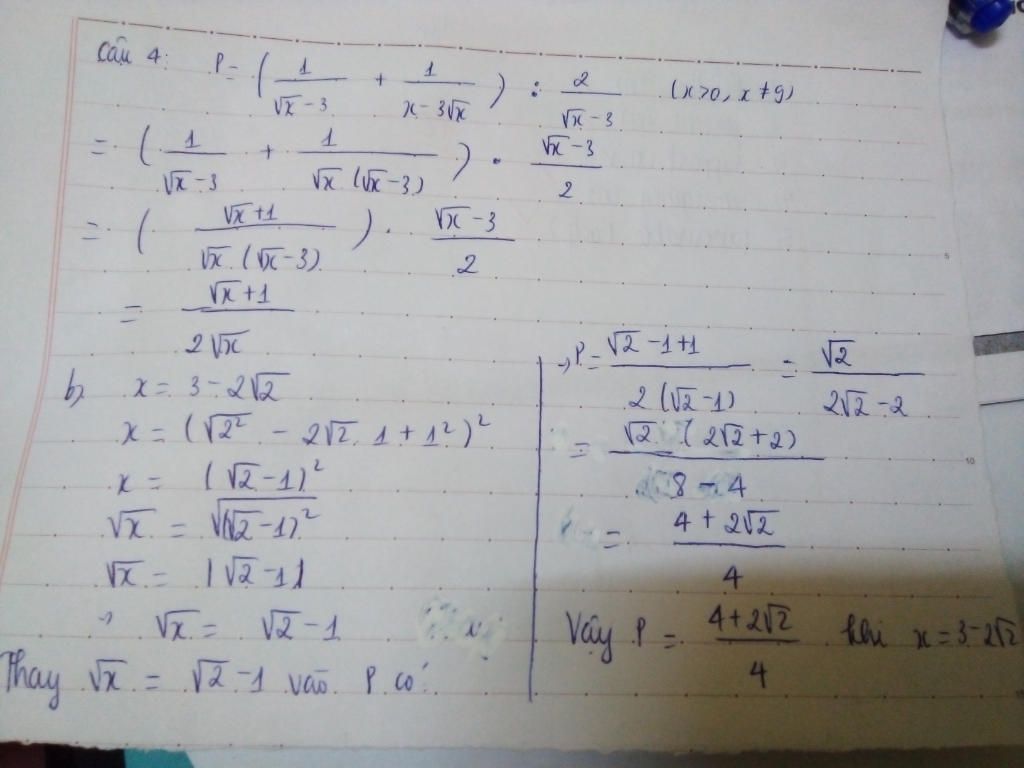 Câu 4: P = ( 1/(√x - 3) + 1/(x - 3√x) ) : 2/(√x - 3) (x>0, x ≠ 9)
= ( 1/(√x - 3) + 1/(√x (√x - 3)) ) . (√x - 3)/2
= ( (√x + 1)/(√x (√x - 3)) ) . (√x - 3)/2
= (√x + 1)/(2√x)
b) x = 3 - 2√2
x = (√2² - 2√2 . 1 + 1²)²
x = (√2 - 1)²
√x = √(√2 - 1)²
√x = |√2 - 1|
→ √x = √2 - 1
Thay √x = √2 - 1 vào P có:
→ P = (√2 - 1 + 1)/(2(√2 - 1)) = √2/(2√2 - 2)
= √2 (2√2 + 2)/(8 - 4)
= (4 + 2√2)/4
Vậy P = (4 + 2√2)/4 khi x = 3 - 2√2